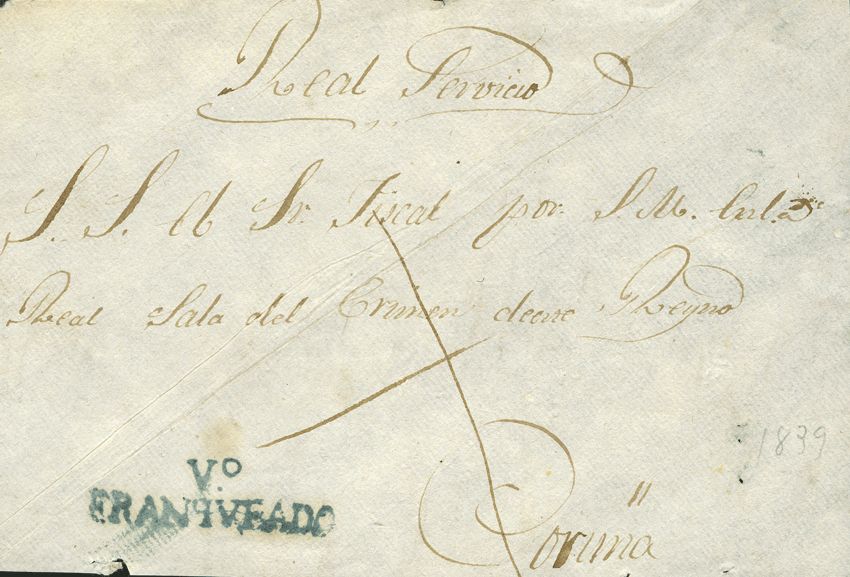 Real Servicio
S. S. el Sr. Fiscal por S. M. en la
Real Sala del Crimen deeste Reyno
1839
Vº
FRANQVEADO
Coruña